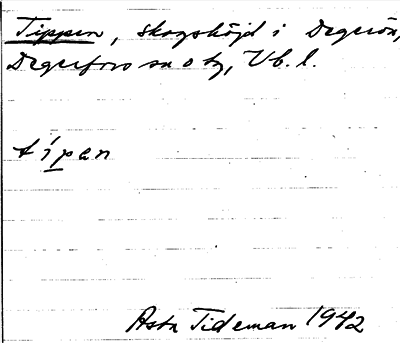 Tippen, skogshöjd i Degerön,
Degerfors sn o by, Vb. l.
típan
Asta Tideman 1942